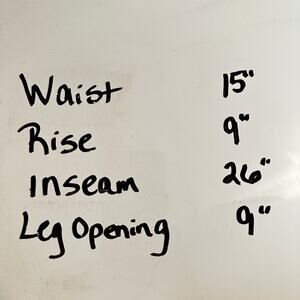 Waist 15"
Rise 9"
Inseam 26"
Leg Opening 9"